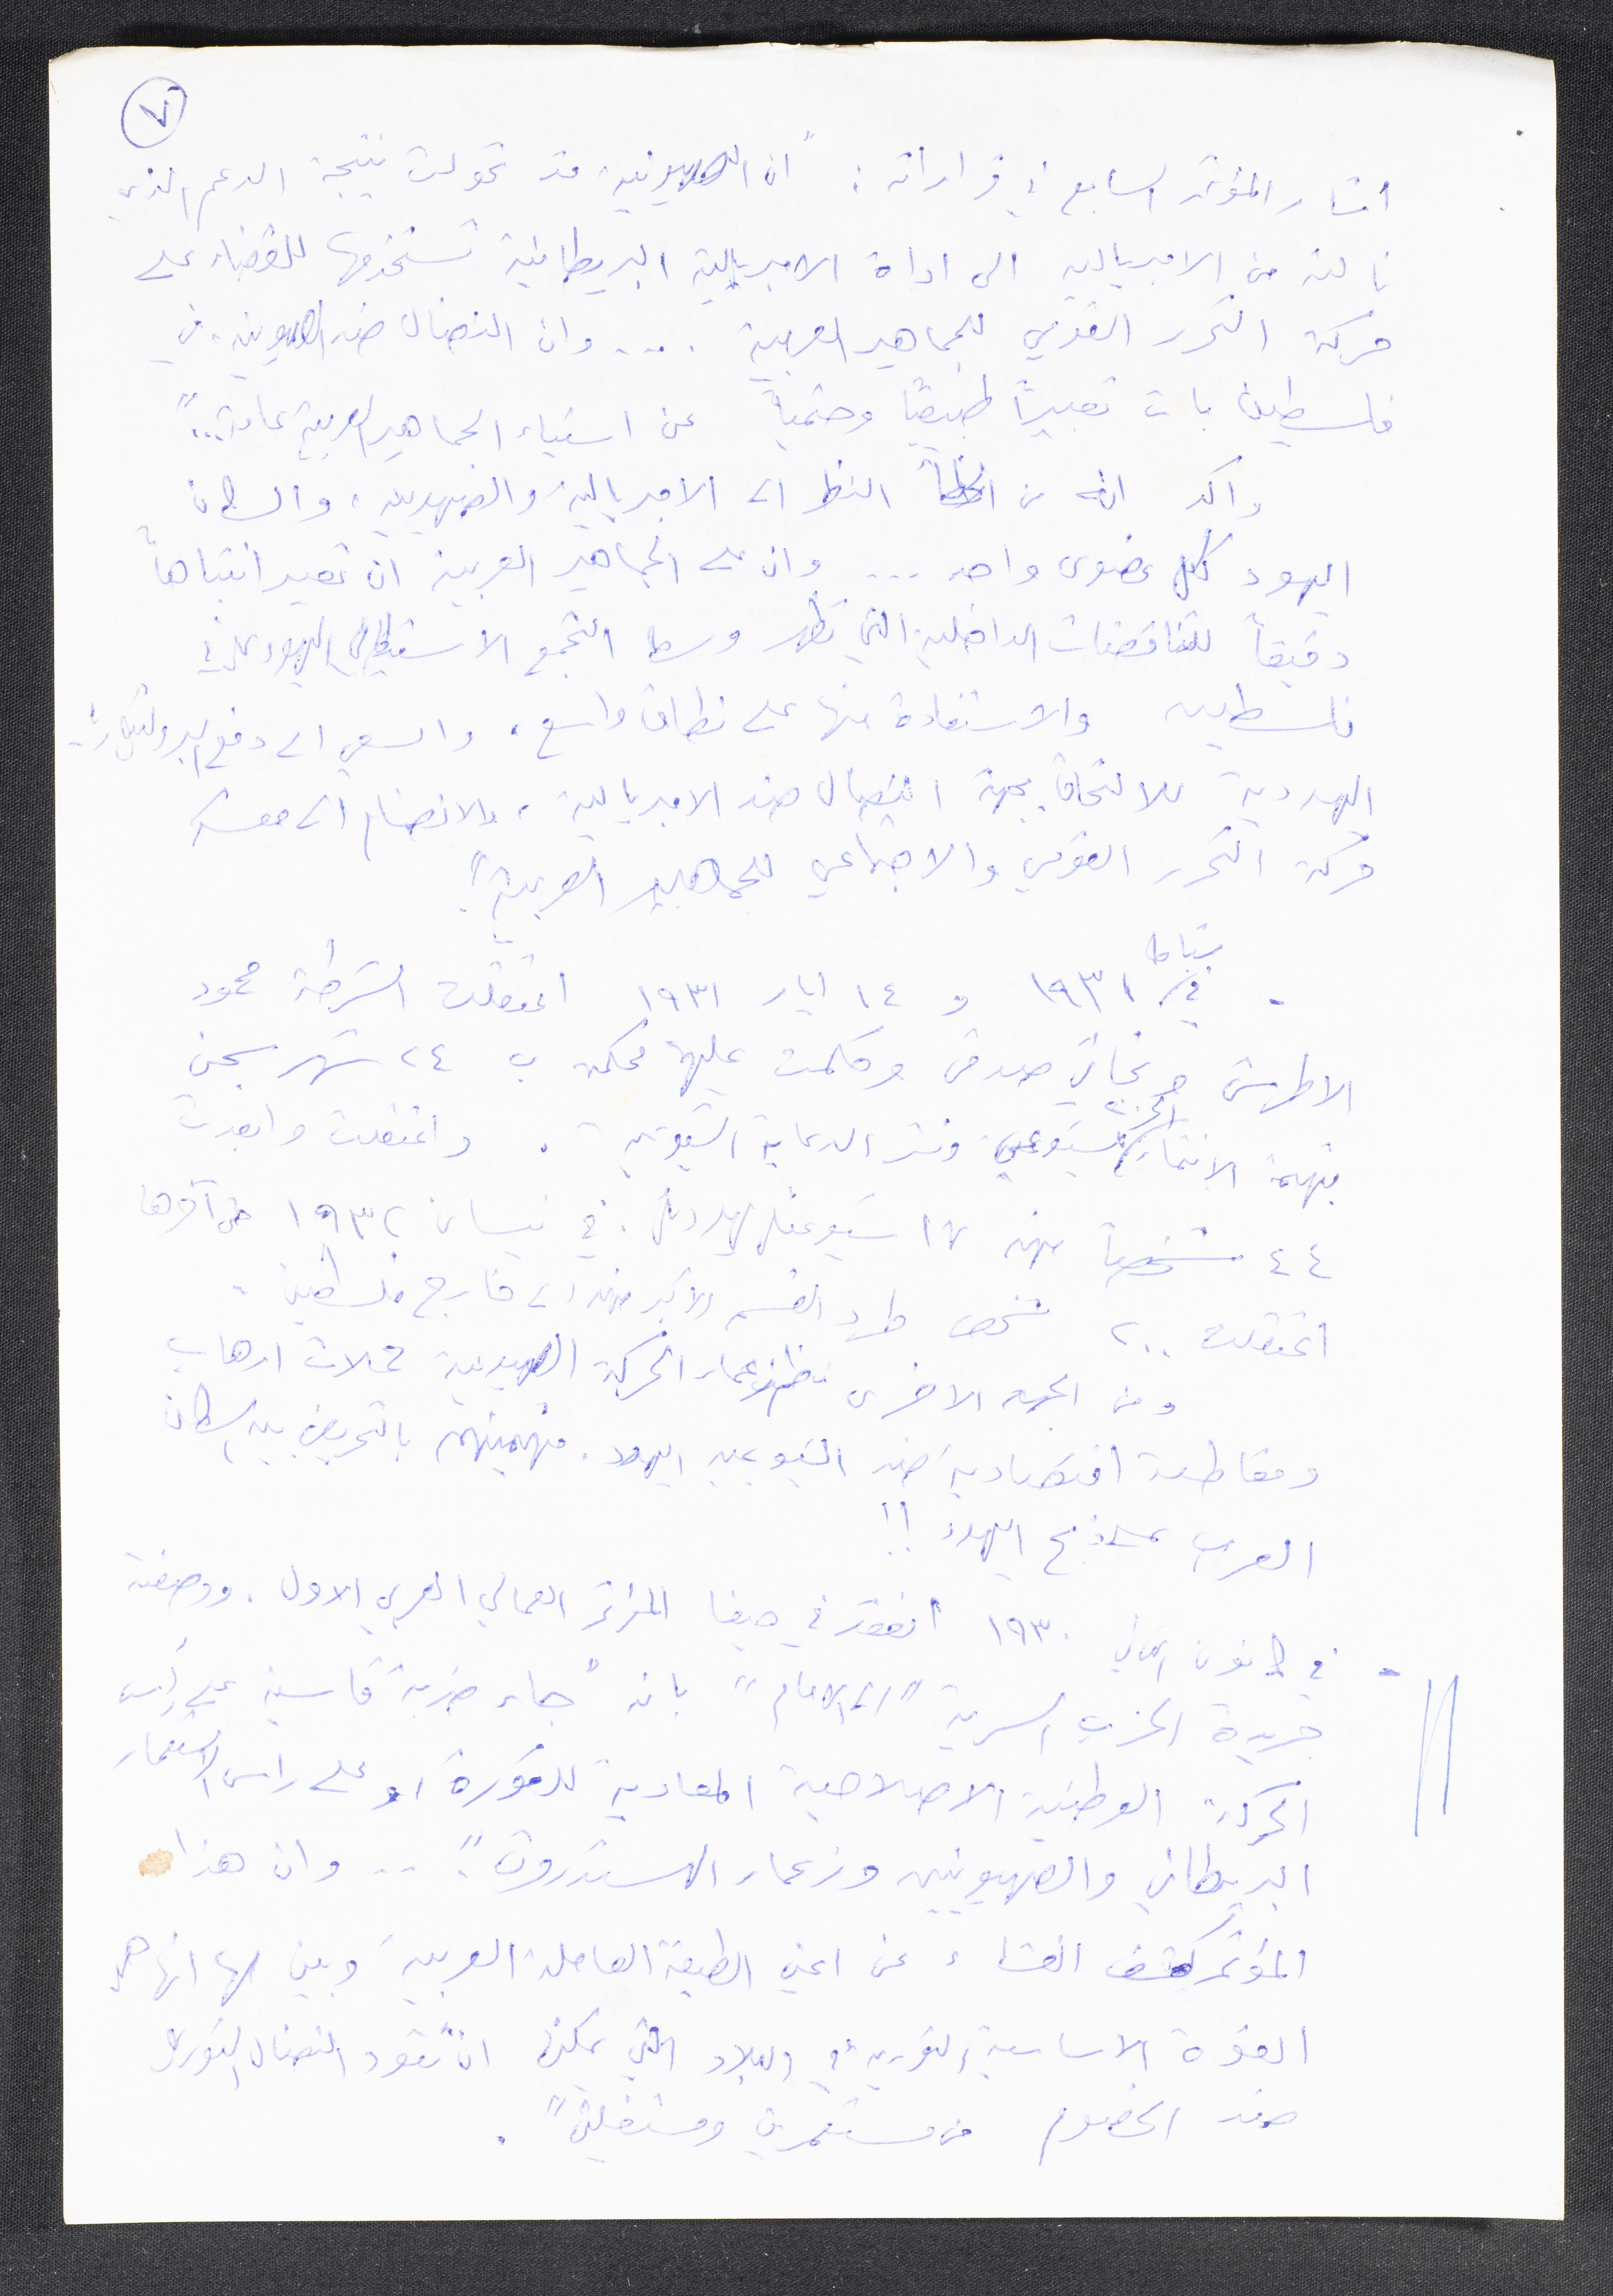 ٧
اشار المؤتمر السابع في قراراته: "ان الصهيونية قد تحولت نتيجة الدعم الذي
نالته من الامبريالية الى اداة الامبريالية البريطانية تستخدمها للقضاء على
حركة التحرر القومي للجماهير العربية .... وان النضال ضد الصهيونية في
فلسطين بات تعبيراً طبيعياً وحتمياً عن استياء الجماهير العربية عامة.."
واكد انه من الخطأ النظر الى الامبريالية والصهيونية، والسكان
اليهود ككل عضوي واحد ... وان على الجماهير العربية ان تعير انتباهاً
دقيقاً للتناقضات الداخلية التي تظهر وسط التجمع الاستيطاني اليهودي في
فلسطين والاستفادة منها على نطاق واسع، والسعي الى دفع البروليتاريا
اليهودية للالتحاق بجبهة النضال ضد الامبريالية، والانضمام الى معسكر
حركة التحرر القومي والاجتماعي للجماهير العربية".
- في شباط ١٩٣١ و ١٤ ايار ١٩٣١ اعتقلت الشرطة محمود
الاطرش و نجاتي صدقي وحكمت عليهما محكمة ب ٢٤ شهر سجن
بتهمة الانتماء للحزب الشيوعي ونشر الدعاية الشيوعية . واعتقلت وابعدت
٤٤ شخصاً منهم ١٧ شيوعيا يهوديا. في نيسان ١٩٣٢ حتى آخرها
اعتقلت ٢٠٠ شخص طرد القسم الاكبر منهم الى خارج فلسطين .
ومن الجهة الاخرى نظم زعماء الحركة الصهيونية حملات ارهاب
ومقاطعة اقتصادية ضد الشيوعيين اليهود. متهمينهم بالتحريض بين السكان
العرب على ذبح اليهود !!
- في كانون الثاني ١٩٣٠ انعقد في حيفا المؤتمر العمالي العربي الاول. ووصفته
جريدة الحزب السرية "الى الامام" بانه "جاء ضربة قاسية على رأس
الحركة الوطنية الاصلاحية المعادية للثورة او على راس الاستعمار
البريطاني والصهيونيين وزعماء الهستدروت". .. وان هذا
المؤتمر كشف الغشاء عن اعين الطبقة العاملة العربية وبين لها انها هي
القوة الاساسية الثورية في البلاد التي يمكنها ان تقود النضال الثوري
ضد الخصوم من مستعمرين ومستغلين".